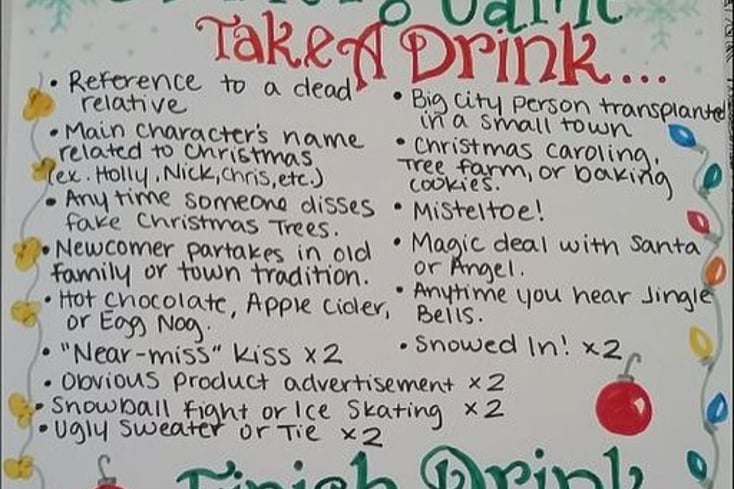 Game
Take A Drink...
• Reference to a dead
relative
• Main character's name
related to Christmas
(ex. Holly, Nick, Chris, etc.)
• Anytime someone disses
fake Christmas Trees.
• Newcomer partakes in old
family or town tradition.
• Hot Chocolate, Apple Cider,
or Egg Nog.
• "Near-miss" Kiss x2
• Obvious product advertisement x2
• Snowball fight or Ice Skating x2
• Ugly Sweater or Tie x2
• Big city person transplanted
in a small town
• Christmas caroling,
Tree farm, or baking
cookies.
• Misteltoe!
• Magic deal with Santa
or Angel.
• Anytime you hear Jingle
Bells.
• Snowed In! x2
Finish Drink